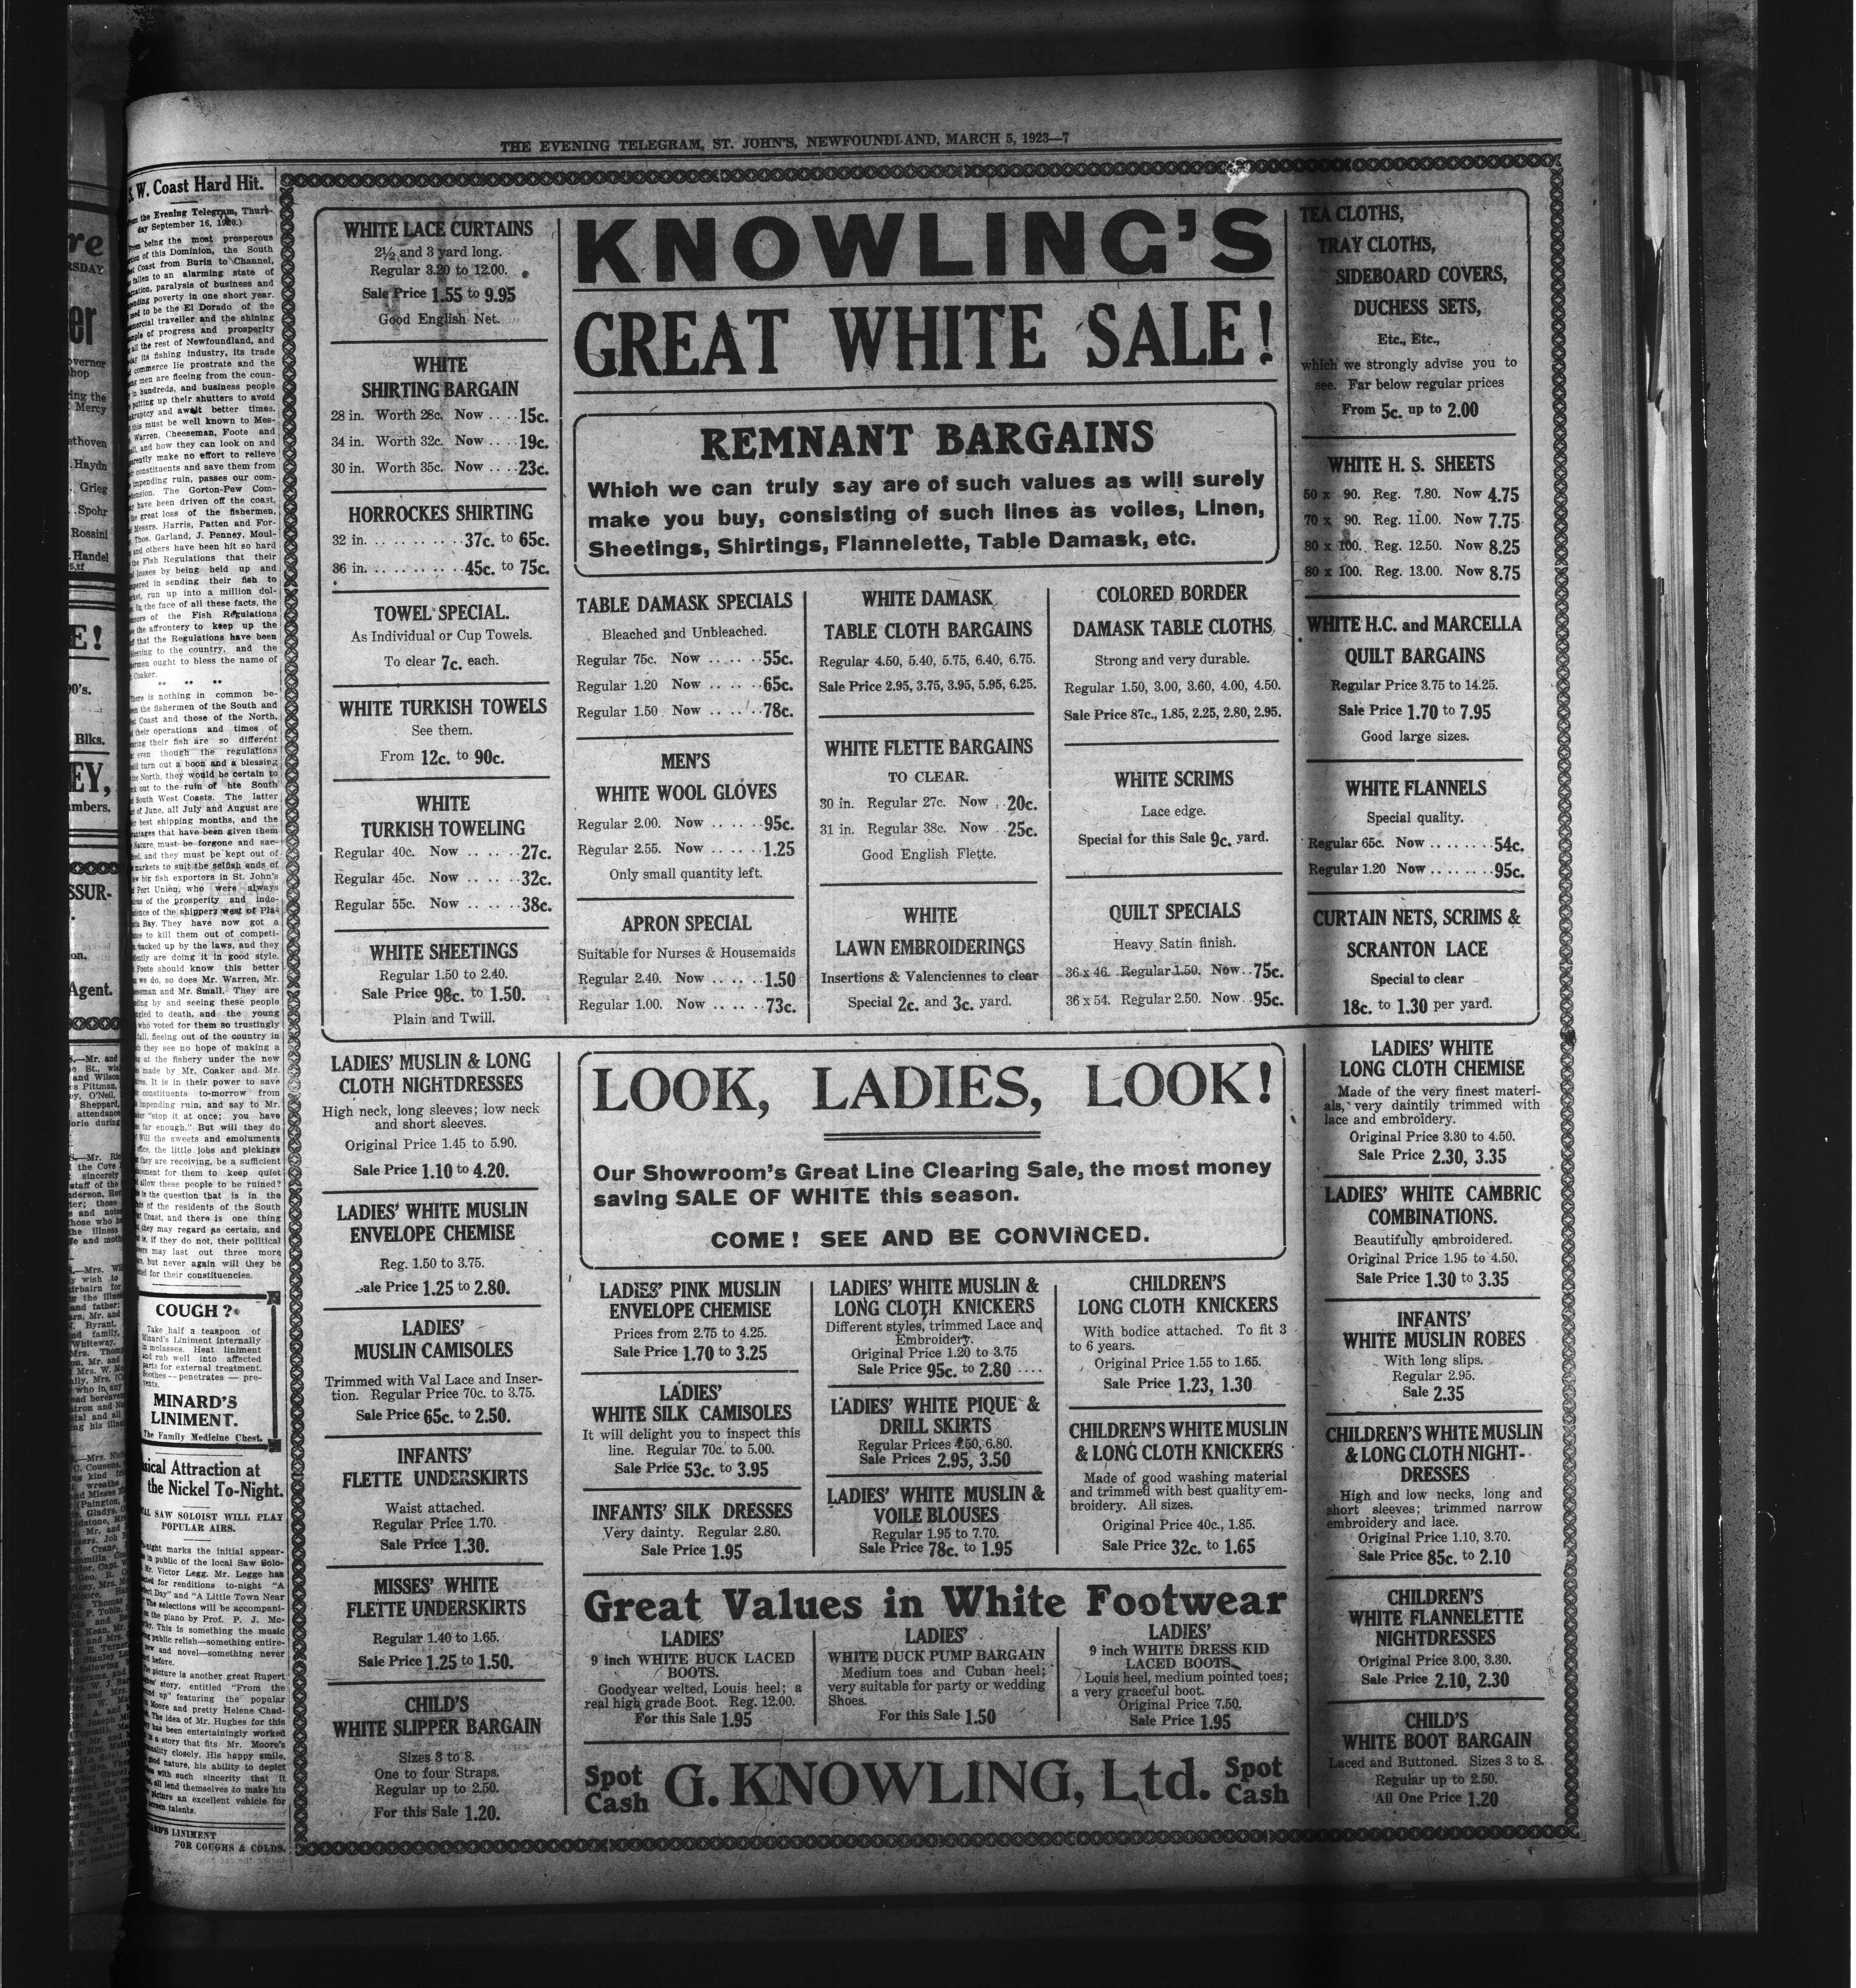 THE EVENING TELEGRAM, ST. JOHN'S, NEWFOUNDLAND, MARCH 5, 1923—7
W. Coast Hard Hit.
the Evening Telegram, Thurs-
day September 16, 1920.)
being the most prosperous
of this Dominion, the South
Coast from Burin to Channel,
fallen to an alarming state of
paralysis of business and
poverty in one short year.
to be the El Dorado of the
traveller and the shining
of progress and prosperity
all the rest of Newfoundland, and
its fishing industry, its trade
commerce lie prostrate and the
men are fleeing from the coun-
in hundreds, and business people
putting up their shutters to avoid
and await better times.
this must be well known to Mes-
Warren, Cheeseman, Foote and
and how they can look on and
make no effort to relieve
constituents and save them from
impending ruin, passes our com-
The Gorton-Pew Com-
have been driven off the coast,
great loss of the fishermen,
Messrs. Harris, Patten and For-
Thos. Garland, J. Penney, Moul-
and others have been hit so hard
the Fish Regulations that their
losses by being held up and
in sending their fish to
run up into a million dol-
in the face of all these facts, the
of the Fish Regulations
the affrontery to keep up the
that the Regulations have been
to the country, and the
ought to bless the name of
Coaker.
** ** **
There is nothing in common be-
the fishermen of the South and
Coast and those of the North,
their operations and times of
their fish are so different
even though the regulations
turn out a boon and a blessing
the North, they would be certain to
out to the ruin of hte South
South West Coasts. The latter
of June, all July and August are
best shipping months, and the
that have been given them
Nature, must be forgone and sac-
and they must be kept out of
markets to suit the selfish ends of
big fish exporters in St. John's
Port Union, who were always
of the prosperity and inde-
of the shippers west of Pla-
Bay. They have now got a
to kill them out of competi-
backed up by the laws, and they
are doing it in good style.
Foote should know this better
we do, so does Mr. Warren, Mr.
and Mr. Small. They are
by and seeing these people
to death, and the young
who voted for them so trustingly
fall, fleeing out of the country in
they see no hope of making a
at the fishery under the new
made by Mr. Coaker and Mr.
It is in their power to save
constituents to-morrow from
impending ruin, and say to Mr.
"stop it at once; you have
far enough." But will they do
Will the sweets and emoluments
office, the little jobs and pickings
they are receiving, be a sufficient
for them to keep quiet
allow these people to be ruined?
is the question that is in the
of the residents of the South
Coast, and there is one thing
they may regard as certain, and
is, if they do not, their political
may last out three more
but never again will they be
for their constituencies.
COUGH?
Take half a teaspoon of
Minard's Liniment internally
in molasses. Heat liniment
and rub well into affected
parts for external treatment.
Soothes—penetrates—pre-
vents.
MINARD'S
LINIMENT.
The Family Medicine Chest.
Attraction at
the Nickel To-Night.
SAW SOLOIST WILL PLAY
POPULAR AIRS.
marks the initial appear-
in public of the local Saw Solo-
Mr. Victor Legg. Mr. Legge has
for renditions to-night "A
Day" and "A Little Town Near
The selections will be accompani-
on the piano by Prof. P. J. Mc-
This is something the music
public relish—something entire-
and novel—something never
before.
picture is another great Rupert
story, entitled "From the
up" featuring the popular
Moore and pretty Helene Chad-
The idea of Mr. Hughes for this
has been entertainingly worked
in a story that fits Mr. Moore's
closely. His happy smile,
good nature, his ability to depict
with such sincerity that it
all lend themselves to make his
picture an excellent vehicle for
screen talents.
LINIMENT
FOR COUGHS & COLDS.
WHITE LACE CURTAINS
2½ and 3 yard long.
Regular 3.20 to 12.00.
Sale Price 1.55 to 9.95
Good English Net.
WHITE
SHIRTING BARGAIN
28 in. Worth 28c. Now .... 15c.
34 in. Worth 32c. Now .... 19c.
30 in. Worth 35c. Now .... 23c.
HORROCKES SHIRTING
32 in. .......... 37c. to 65c.
36 in. .......... 45c. to 75c.
TOWEL SPECIAL.
As Individual or Cup Towels.
To clear 7c. each.
WHITE TURKISH TOWELS
See them.
From 12c. to 90c.
WHITE
TURKISH TOWELING
Regular 40c. Now ...... 27c.
Regular 45c. Now ...... 32c.
Regular 55c. Now ...... 38c.
WHITE SHEETINGS
Regular 1.50 to 2.40.
Sale Price 98c. to 1.50.
Plain and Twill.
KNOWLING'S
GREAT WHITE SALE!
REMNANT BARGAINS
Which we can truly say are of such values as will surely
make you buy, consisting of such lines as voiles, Linen,
Sheetings, Shirtings, Flannelette, Table Damask, etc.
TABLE DAMASK SPECIALS
Bleached and Unbleached.
Regular 75c. Now ...... 55c.
Regular 1.20 Now ...... 65c.
Regular 1.50 Now ...... 78c.
MEN'S
WHITE WOOL GLOVES
Regular 2.00. Now ...... 95c.
Regular 2.55. Now ...... 1.25
Only small quantity left.
APRON SPECIAL
Suitable for Nurses & Housemaids
Regular 2.40. Now ...... 1.50
Regular 1.00. Now ...... 73c.
WHITE DAMASK
TABLE CLOTH BARGAINS
Regular 4.50, 5.40, 5.75, 6.40, 6.75.
Sale Price 2.95, 3.75, 3.95, 5.95, 6.25.
WHITE FLETTE BARGAINS
TO CLEAR.
30 in. Regular 27c. Now .. 20c.
31 in. Regular 38c. Now .. 25c.
Good English Flette.
WHITE
LAWN EMBROIDERINGS
Insertions & Valenciennes to clear
Special 2c. and 3c. yard.
COLORED BORDER
DAMASK TABLE CLOTHS
Strong and very durable.
Regular 1.50, 3.00, 3.60, 4.00, 4.50.
Sale Price 87c., 1.85, 2.25, 2.80, 2.95.
WHITE SCRIMS
Lace edge.
Special for this Sale 9c. yard.
QUILT SPECIALS
Heavy Satin finish.
36 x 46. Regular 1.50. Now.. 75c.
36 x 54. Regular 2.50. Now.. 95c.
TEA CLOTHS,
TRAY CLOTHS,
SIDEBOARD COVERS,
DUCHESS SETS,
Etc., Etc.,
which we strongly advise you to
see. Far below regular prices
From 5c. up to 2.00
WHITE H. S. SHEETS
50 x 90. Reg. 7.80. Now 4.75
70 x 90. Reg. 11.00. Now 7.75
80 x 100. Reg. 12.50. Now 8.25
80 x 100. Reg. 13.00. Now 8.75
WHITE H.C. and MARCELLA
QUILT BARGAINS
Regular Price 3.75 to 14.25.
Sale Price 1.70 to 7.95
Good large sizes.
WHITE FLANNELS
Special quality.
Regular 65c. Now ........ 54c.
Regular 1.20 Now ........ 95c.
CURTAIN NETS, SCRIMS &
SCRANTON LACE
Special to clear
18c. to 1.30 per yard.
LADIES' MUSLIN & LONG
CLOTH NIGHTDRESSES
High neck, long sleeves; low neck
and short sleeves.
Original Price 1.45 to 5.90.
Sale Price 1.10 to 4.20.
LADIES' WHITE MUSLIN
ENVELOPE CHEMISE
Reg. 1.50 to 3.75.
Sale Price 1.25 to 2.80.
LADIES'
MUSLIN CAMISOLES
Trimmed with Val Lace and Inser-
tion. Regular Price 70c. to 3.75.
Sale Price 65c. to 2.50.
INFANTS'
FLETTE UNDERSKIRTS
Waist attached.
Regular Price 1.70.
Sale Price 1.30.
MISSES' WHITE
FLETTE UNDERSKIRTS
Regular 1.40 to 1.65.
Sale Price 1.25 to 1.50.
CHILD'S
WHITE SLIPPER BARGAIN
Sizes 3 to 8.
One to four Straps.
Regular up to 2.50.
For this Sale 1.20.
LOOK, LADIES, LOOK!
Our Showroom's Great Line Clearing Sale, the most money
saving SALE OF WHITE this season.
COME! SEE AND BE CONVINCED.
LADIES' PINK MUSLIN
ENVELOPE CHEMISE
Prices from 2.75 to 4.25.
Sale Price 1.70 to 3.25
LADIES'
WHITE SILK CAMISOLES
It will delight you to inspect this
line. Regular 70c. to 5.00.
Sale Price 53c. to 3.95
INFANTS' SILK DRESSES
Very dainty. Regular 2.80.
Sale Price 1.95
LADIES' WHITE MUSLIN &
LONG CLOTH KNICKERS
Different styles, trimmed Lace and
Embroidery.
Original Price 1.20 to 3.75
Sale Price 95c. to 2.80 ....
LADIES' WHITE PIQUE &
DRILL SKIRTS
Regular Prices 4.50, 6.80.
Sale Prices 2.95, 3.50
LADIES' WHITE MUSLIN &
VOILE BLOUSES
Regular 1.95 to 7.70.
Sale Price 78c. to 1.95
CHILDREN'S
LONG CLOTH KNICKERS
With bodice attached. To fit 3
to 6 years.
Original Price 1.55 to 1.65.
Sale Price 1.23, 1.30
CHILDREN'S WHITE MUSLIN
& LONG CLOTH KNICKERS
Made of good washing material
and trimmed with best quality em-
broidery. All sizes.
Original Price 40c., 1.85.
Sale Price 32c. to 1.65
LADIES' WHITE
LONG CLOTH CHEMISE
Made of the very finest materi-
als, very daintily trimmed with
lace and embroidery.
Original Price 3.30 to 4.50.
Sale Price 2.30, 3.35
LADIES' WHITE CAMBRIC
COMBINATIONS.
Beautifully embroidered.
Original Price 1.95 to 4.50.
Sale Price 1.30 to 3.35
INFANTS'
WHITE MUSLIN ROBES
With long slips.
Regular 2.95.
Sale 2.35
CHILDREN'S WHITE MUSLIN
& LONG CLOTH NIGHT-
DRESSES
High and low necks, long and
short sleeves; trimmed narrow
embroidery and lace.
Original Price 1.10, 3.70.
Sale Price 85c. to 2.10
CHILDREN'S
WHITE FLANNELETTE
NIGHTDRESSES
Original Price 3.00, 3.30.
Sale Price 2.10, 2.30
CHILD'S
WHITE BOOT BARGAIN
Laced and Buttoned. Sizes 3 to 8.
Regular up to 2.50.
All One Price 1.20
Great Values in White Footwear
LADIES'
9 inch WHITE BUCK LACED
BOOTS.
Goodyear welted, Louis heel; a
real high grade Boot. Reg. 12.00.
For this Sale 1.95
LADIES'
WHITE DUCK PUMP BARGAIN
Medium toes and Cuban heel;
very suitable for party or wedding
Shoes.
For this Sale 1.50
LADIES'
9 inch WHITE DRESS KID
LACED BOOTS.
Louis heel, medium pointed toes;
a very graceful boot.
Original Price 7.50.
Sale Price 1.95
Spot
Cash
G. KNOWLING, Ltd.
Spot
Cash